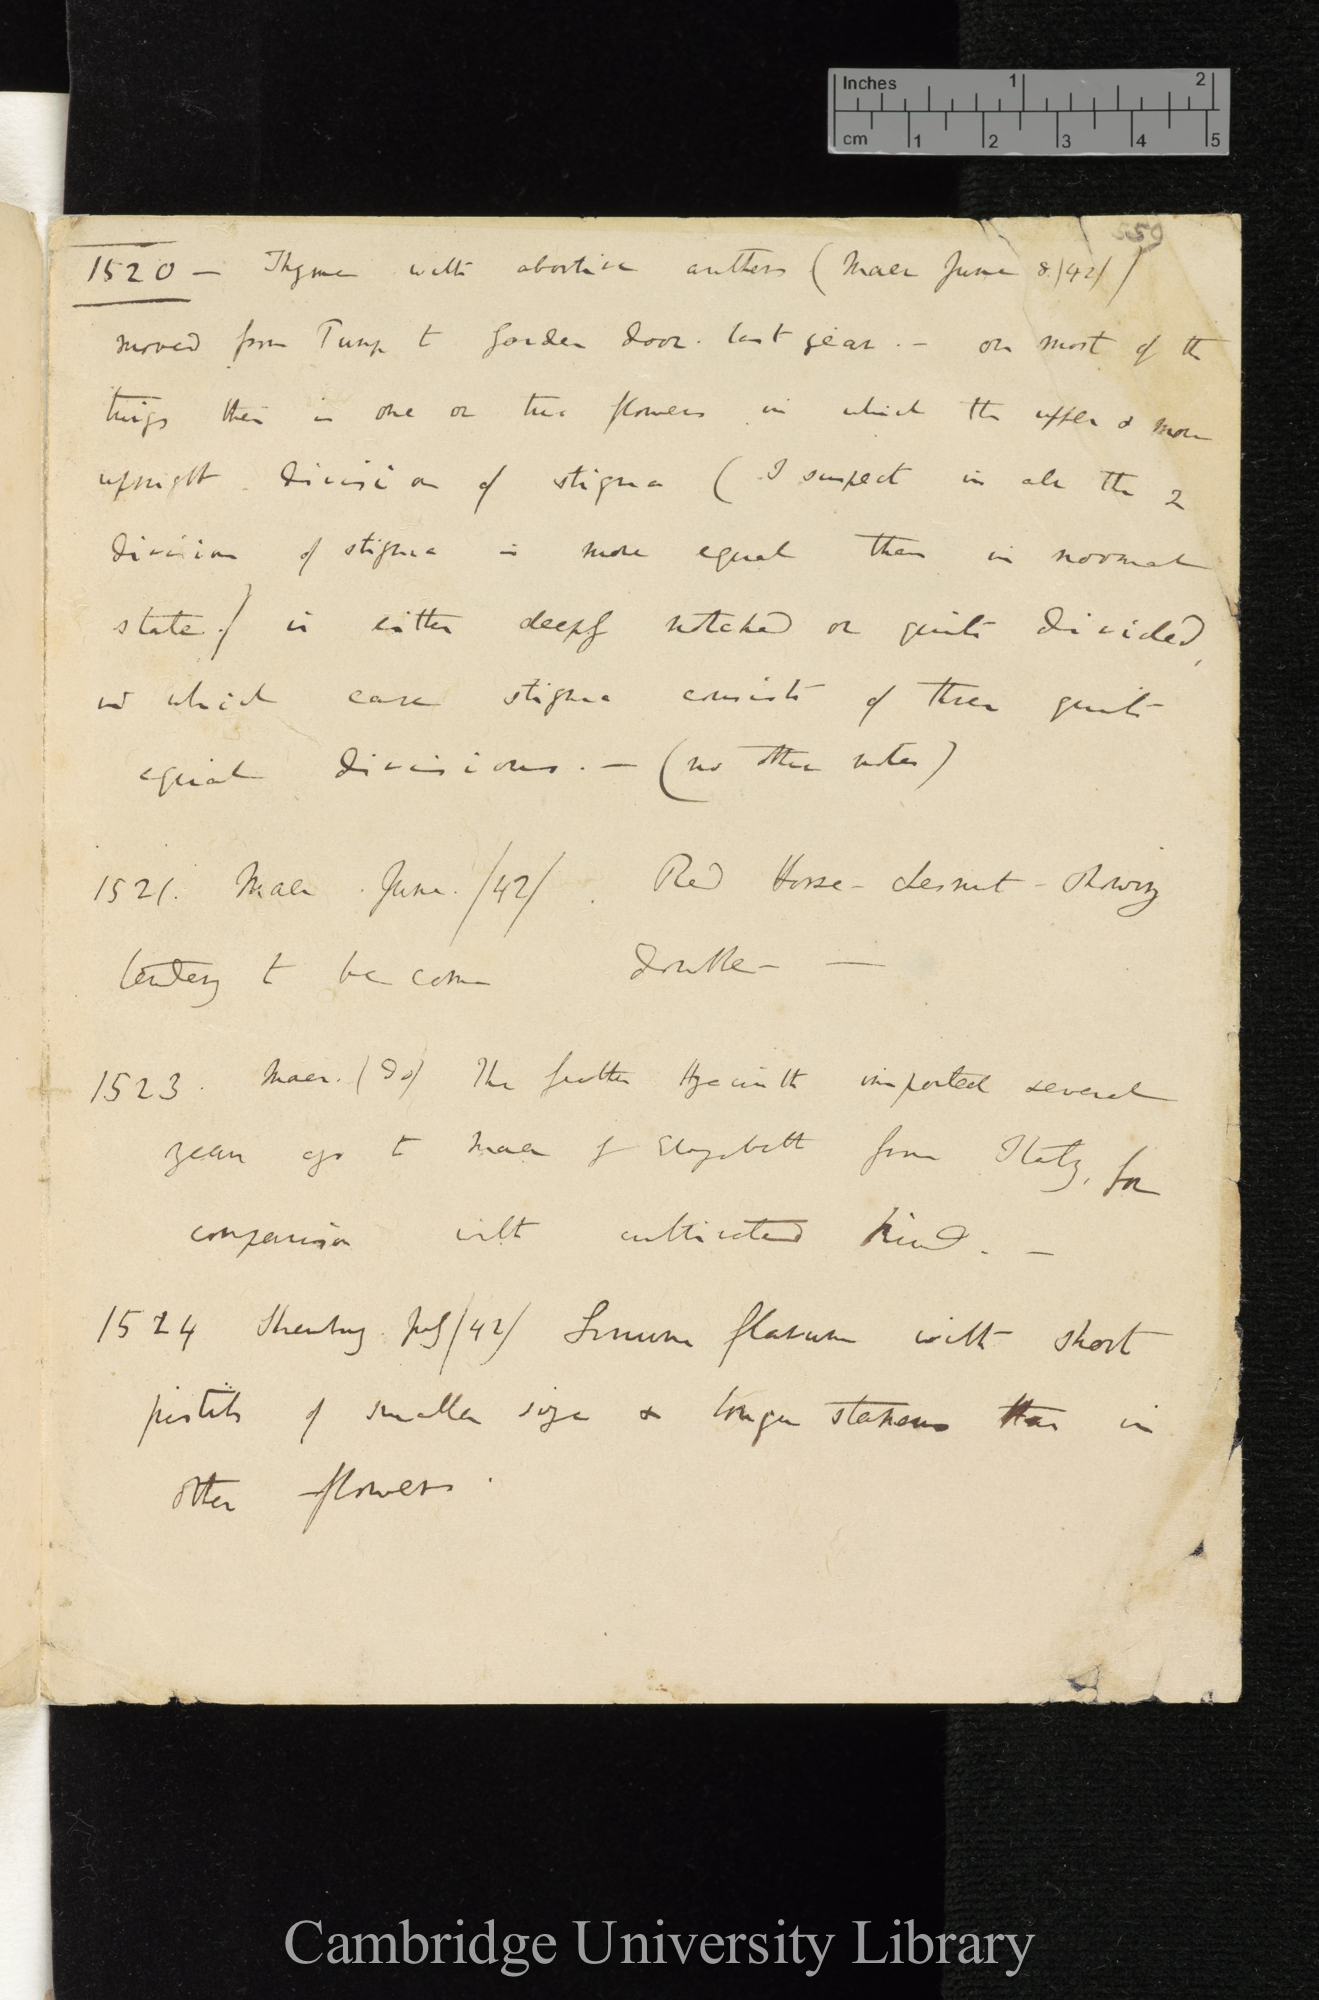 Inches 1 2
cm 1 2 3 4 5
559
1520 — Thyme with abortive anthers (Maer June 8/42/)
moved from Pump to Garden door last year. — on most of the
twigs there is one or two flowers in which the upper & more
upright division of stigma (I suspect in all the 2
division of stigma is more equal than in normal
state/) is either deeply notched or quite divided,
in which case stigma consists of three quite
equal divisions. — (no other notes)
1521. Maer June. /42/. Red Horse-chesnut — showing
tendency to become double — —
1523. Maer. (Do) The feather Hyacinth imported several
years ago to Maer by Elizabeth from Italy, for
comparison with cultivated kind. —
1524 Shrewsbury July /42/ Linum flavum with short
pistils of smaller size & longer stamens than in
other flowers.
Cambridge University Library